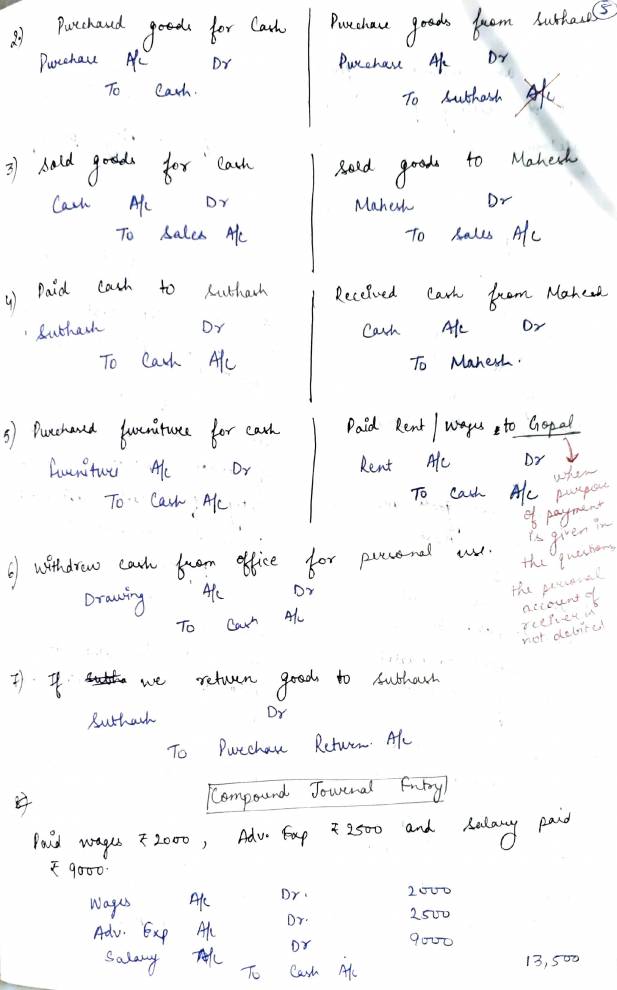 5
2) Purchased goods for Cash
Purchase A/c Dr
To Cash.
Purchase goods from Subhash
Purchase A/c Dr
To Subhash A/c
3) Sold goods for cash
Cash A/c Dr
To Sales A/c
Sold goods to Mahesh
Mahesh Dr
To Sales A/c
4) Paid cash to Subhash
Subhash Dr
To Cash A/c
Received cash from Mahesh
Cash A/c Dr
To Mahesh.
5) Purchased furniture for cash
Furniture A/c Dr
To Cash A/c
Paid Rent / wages to Gopal
Rent A/c Dr
To Cash A/c
when
purpose
of payment
is given in
the questions
the personal
account of
reciever is
not debited
6) Withdrew cash from office for personal use.
Drawing A/c Dr
To Cash A/c
7) If we return goods to Subhash
Subhash Dr
To Purchase Return A/c
8)
Compound Journal Entry
Paid wages ₹ 2000, Adv. Exp ₹ 2500 and Salary paid
₹ 9000.
Wages A/c Dr. 2000
Adv. Exp A/c Dr. 2500
Salary A/c Dr 9000
To Cash A/c 13,500